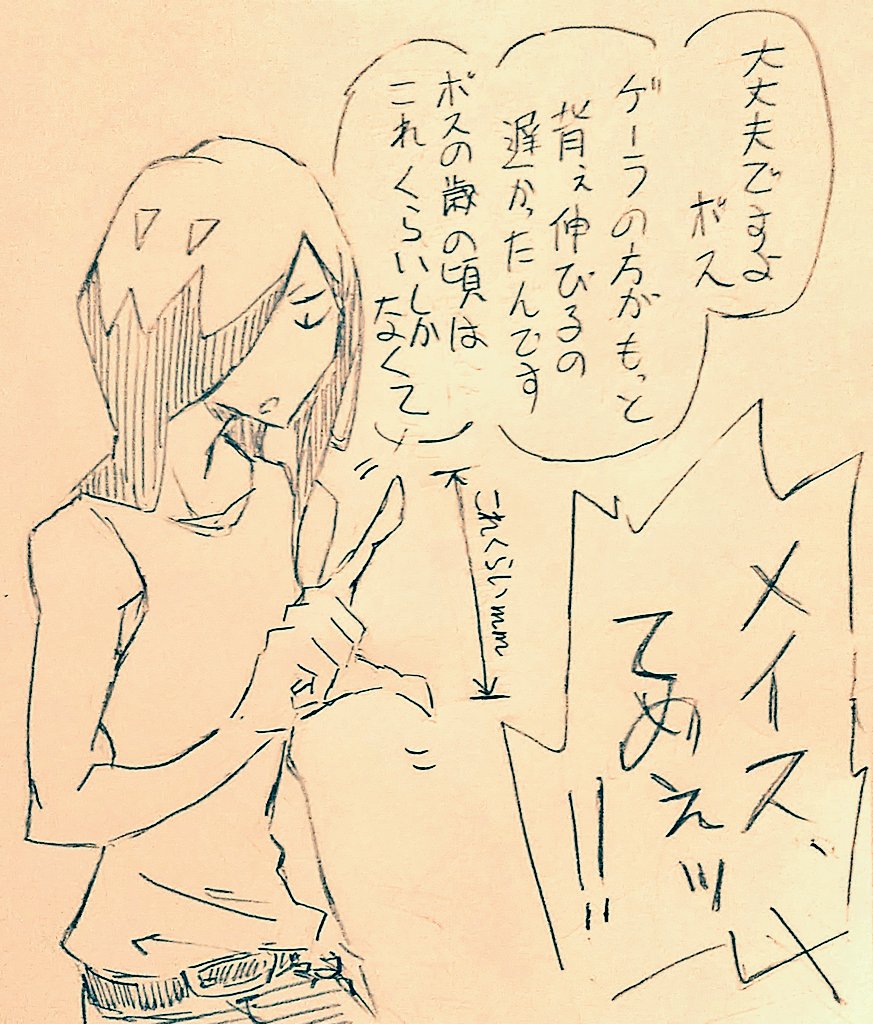 大丈夫ですよ
ボス
ゲーラの方がもっと
背ぇ伸びるの
遅かったんです
ボスの歳の頃は
これくらいしか
なくて
これくらいmm
メイス、
てめぇッ
!!